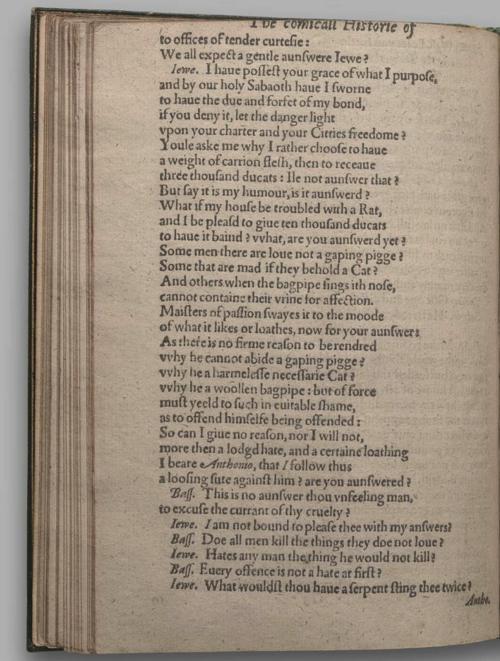 The comicall Historie of
to offices of tender curtesie :
We all expect a gentle aunswere Iewe ?
Iewe. I haue possest your grace of what I purpose,
and by our holy Sabaoth haue I sworne
to haue the due and forfet of my bond,
if you deny it, let the danger light
vpon your charter and your Citties freedome ?
Youle aske me why I rather choose to haue
a weight of carrion flesh, then to receaue
three thousand ducats : Ile not aunswer that ?
But say it is my humour, is it aunswerd ?
What if my house be troubled with a Rat,
and I be pleasd to giue ten thousand ducats
to haue it baind ? vvhat, are you aunswerd yet ?
Some men there are loue not a gaping pigge ?
Some that are mad if they behold a Cat ?
And others when the bagpipe sings ith nose,
cannot containe their vrine for affection.
Maisters of passion swayes it to the moode
of what it likes or loathes, now for your aunswer :
As there is no firme reason to be rendred
vvhy he cannot abide a gaping pigge ?
vvhy he a harmelesse necessarie Cat ?
vvhy he a woollen bagpipe : but of force
must yeeld to such in euitable shame,
as to offend himselfe being offended :
So can I giue no reason, nor I will not,
more then a lodgd hate, and a certaine loathing
I beare Anthonio, that I follow thus
a loosing sute against him ? are you aunswered ?
Bass. This is no aunswer thou vnfeeling man,
to excuse the currant of thy cruelty ?
Iewe. I am not bound to please thee with my answers?
Bass. Doe all men kill the things they doe not loue ?
Iewe. Hates any man the thing he would not kill?
Bass. Euery offence is not a hate at first ?
Iewe. What wouldst thou haue a serpent sting thee twice?
Antho.